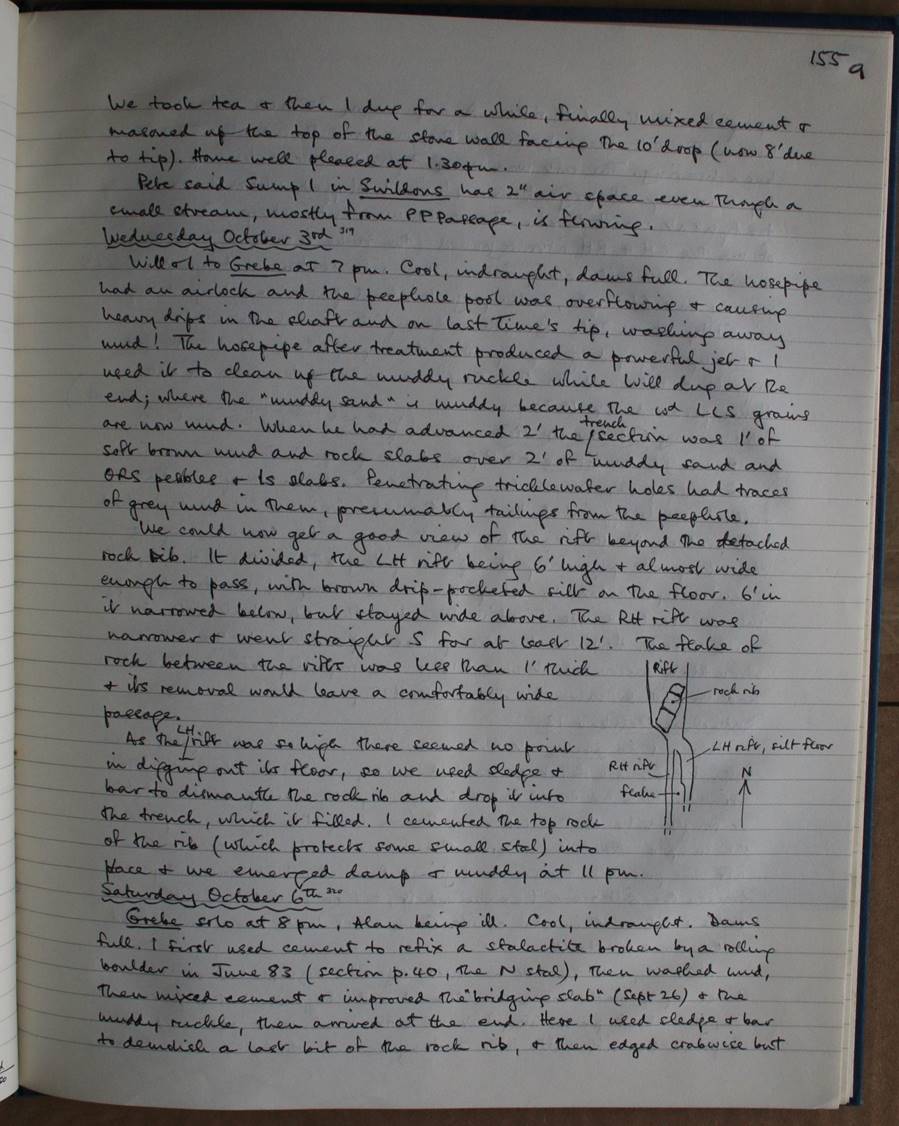 155a
We took tea & then I dug for a while, finally mixed cement &
masoned up the top of the stone wall facing the 10' drop (now 8' due
to tip). Home well pleased at 1.30am.
Pete said Sump 1 in Swildons has 2" air space even though a
small stream, mostly from PPPassage, is flowing.
Wednesday October 3rd 319
Will & I to Grebe at 7 pm. Cool, indraught, dams full. The hosepipe
had an airlock and the peephole pool was overflowing & causing
heavy drips in the shaft and on last time's tip, washing away
mud! The hosepipe after treatment produced a powerful jet & I
used it to clean up the muddy ruckle while Will dug at the
end; where the "muddy sand" is muddy because the LLS grains
are now mud. When he had advanced 2' the trench section was 1' of
soft brown mud and rock slabs over 2' of muddy sand and
ORS pebbles & ls slabs. Penetrating tricklewater holes had traces
of grey mud in them, presumably tailings from the peephole.
We could now get a good view of the rift beyond the detached
rock rib. It divided, the LH rift being 6' high & almost wide
enough to pass, with brown drip-pocketed silt on the floor. 6' in
it narrowed below, but stayed wide above. The RH rift was
narrower & went straight S for at least 12'. The flake of
rock between the rifts was less than 1' thick
& its removal would leave a comfortably wide
passage.
As the LH rift was so high there seemed no point
in digging out its floor, so we used sledge &
bar to dismantle the rock rib and drop it into
the trench, which it filled. I cemented the top rock
of the rib (which protects some small stal) into
place & we emerged damp & muddy at 11 pm.
Rift
rock rib
LH rift, silt floor
RH rift
flake
N
Saturday October 6th 320
Grebe solo at 8 pm, Alan being ill. Cool, indraught. Dams
full. I first used cement to refix a stalactite broken by a rolling
boulder in June 83 (section p.40, the N stal), then washed mud,
then mixed cement & improved the "bridging slab" (Sept 26) & the
muddy ruckle, then arrived at the end. Here I used sledge & bar
to demolish a last bit of the rock rib, & then edged crabwise but